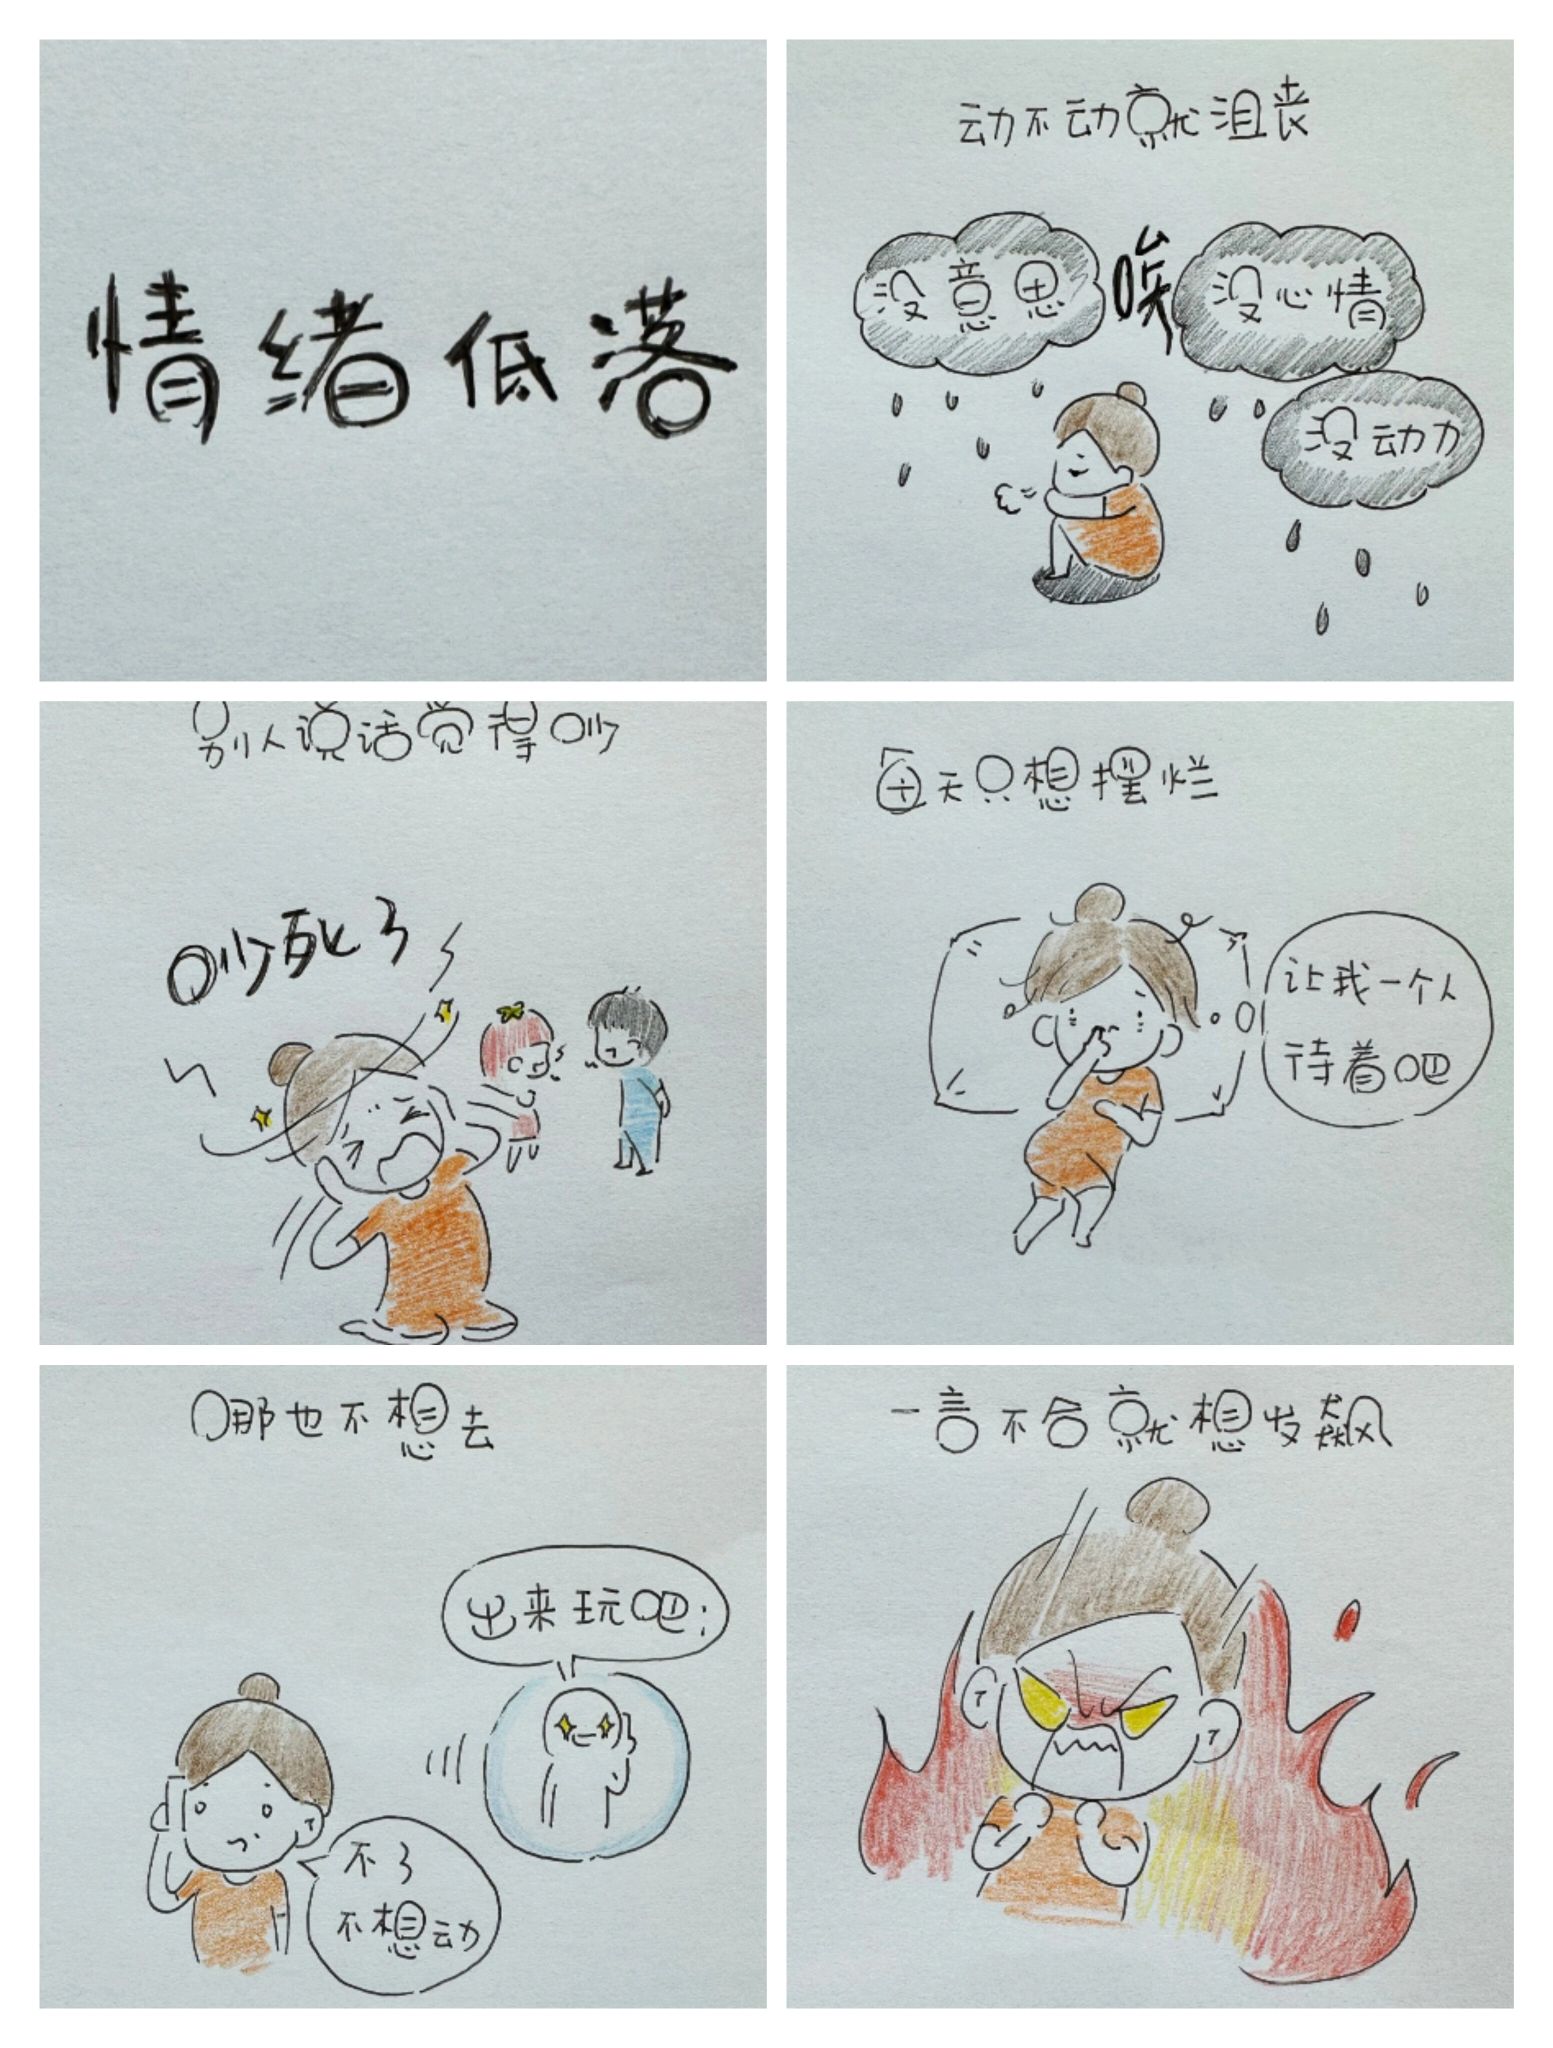 情绪低落
动不动就沮丧
没意思
唉
没心情
没动力
别人说话觉得吵
吵死了
每天只想摆烂
让我一个人
待着吧
哪也不想去
出来玩吧!
不了
不想动
一言不合就想发飙